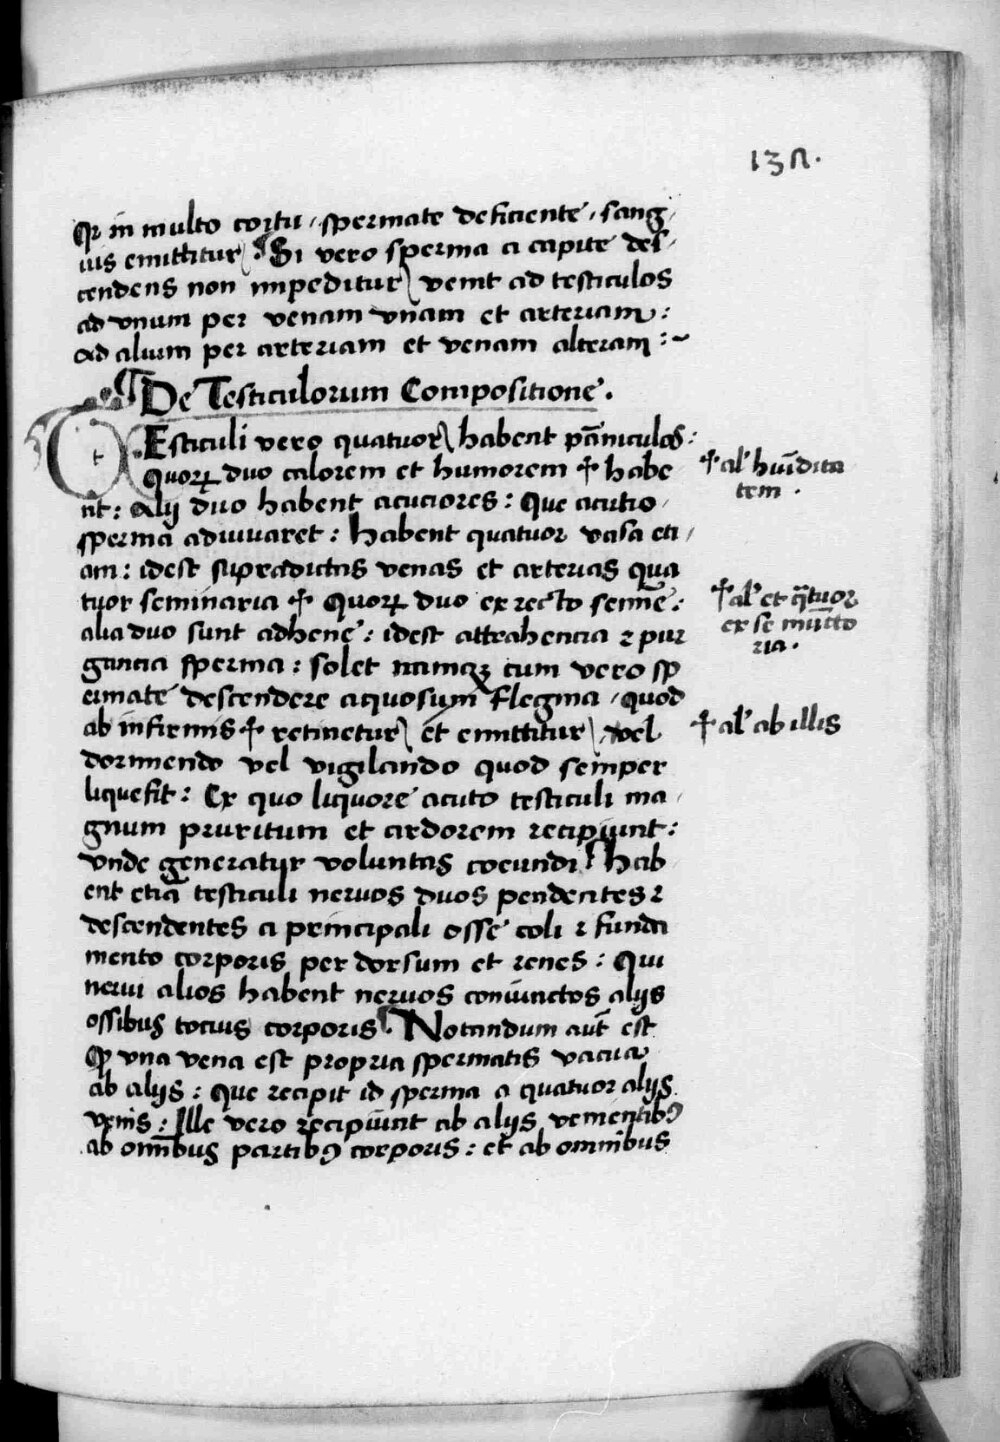 138.
Qr in multo coitu, spermate deficiente, sang,
uis emittitur. ¶ Si vero sperma a capite des,
cendens non impeditur, venit ad testiculos
ad vnum per venam vnam et arteriam:
ad alium per arteriam et venam alteram:~
¶ De Testiculorum Compositione.
t Esticuli vero quatuor habent pāniculos:
quorꝝ duo calorem et humorem ✝ habe
nt: Alij duo habent acuciores: Que acutio,
sperma adiuuaret: habent quatuor vasa eti,
am: idest supradictas venas et arterias qua
tuor seminaria ✝ Quorꝝ duo ex recto semīe:
alia duo sunt adhene: idest attrahencia ⁊ pur
gancia sperma: solet namqꝫ cum vero sp
ermate descendere aquosum flegma, quod
ab infirmis ✝ retinetur et emittitur, vel
dormiendo vel vigilando quod semper
liquefit: Ex quo liquore acuto testiculi ma,
gnum pruritum et ardorem recipiunt:
vnde generatur voluntas coeundi ¶ hab
ent etiā testiculi neruos duos pendentes ⁊
descendentes a principali osse coli ⁊ funda
mento corporis per dorsum et renes: Qui
nerui alios habent neruos coniunctos alijs
ossibus tocius corporis ¶ Notandum aut̄ est
ꝙ vna vena est propria spermatis vacua
ab alijs: que recipit id sperma a quatuor alijs
venis: Ille vero recipiunt ab alijs venientibꝰ
ab omībus partibꝰ corporis: et ab omnibus
✝ al' humīdita
tem.
✝ al' et q̄tuor
ex se
ria.
✝ al' ab illis